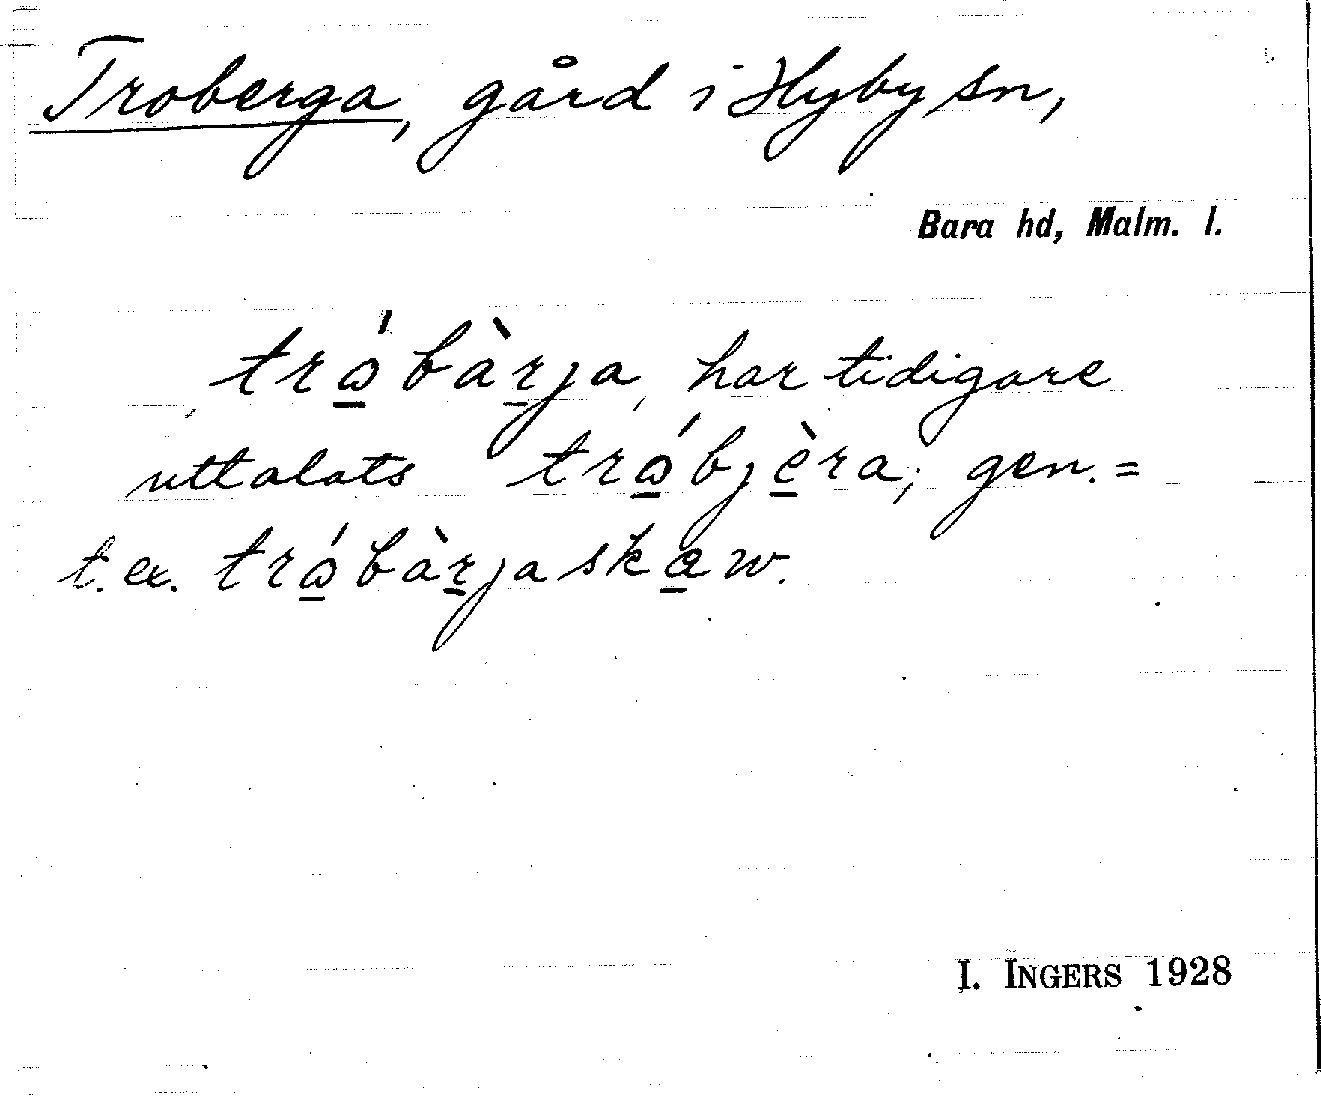 Troberga, gård i Hyby sn,
Bara hd, Malm. l.
trǿ̲bàr̲ja, har tidigare
uttalats trǿ̲bjè̲ra; gen.=
t. ex. trǿ̲bàr̲jaska̲w.
I. INGERS 1928